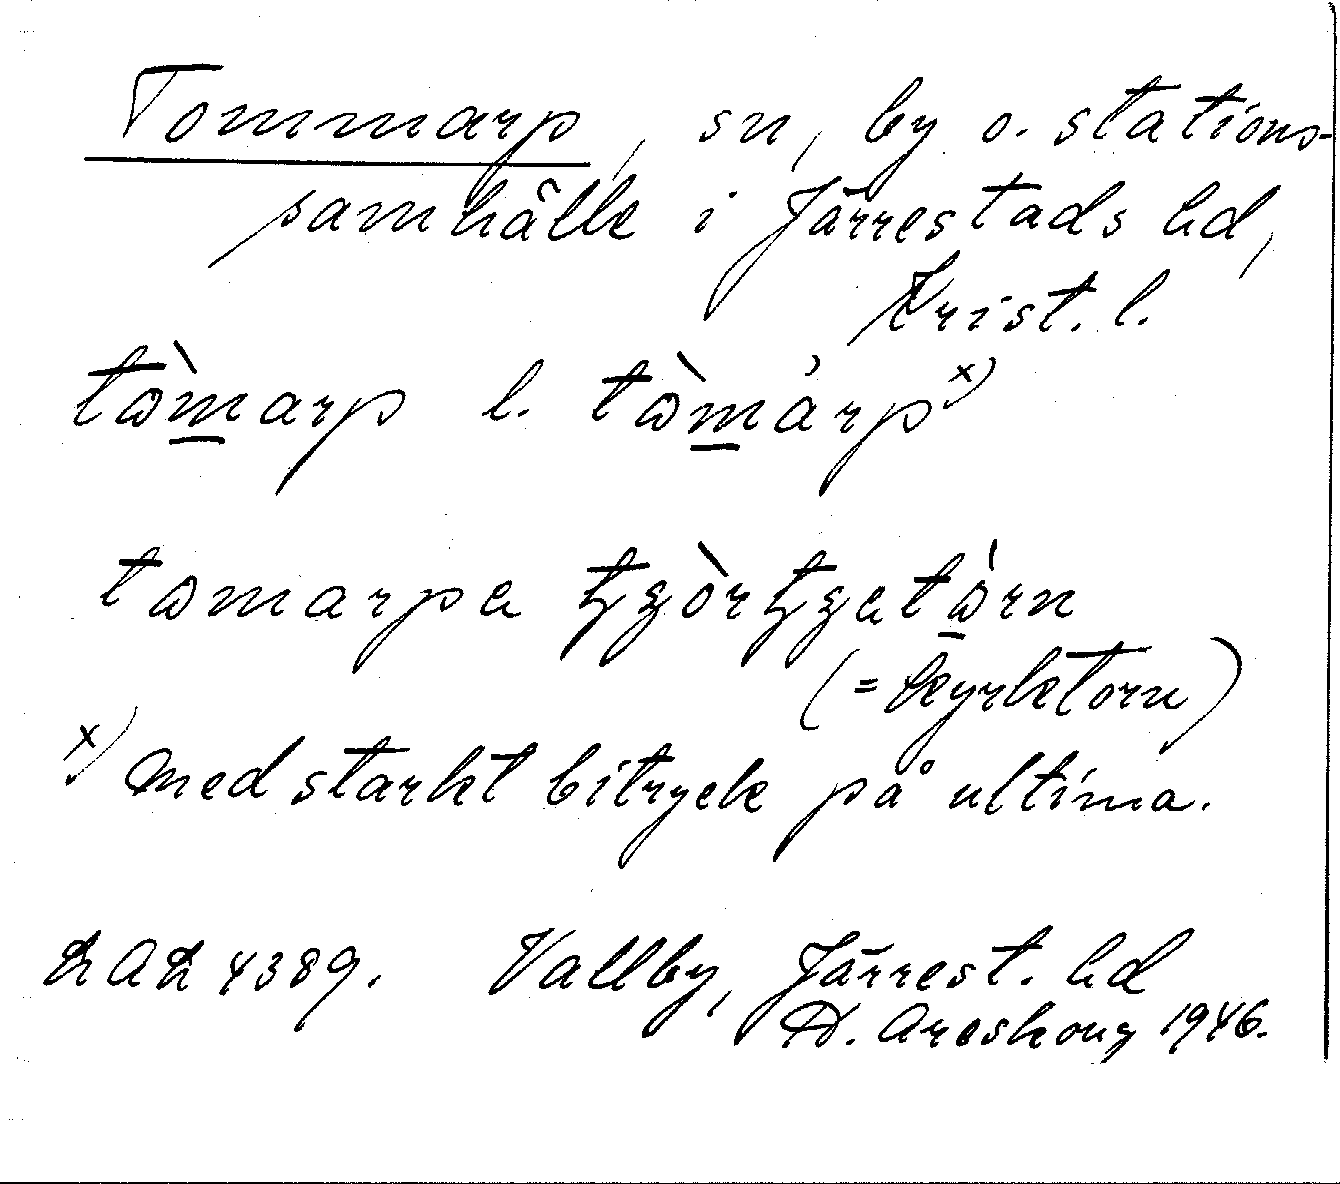 Tommarp, sn, by o. stations-
samhälle i Järrestads hd,
Krist. l.
tòmarp l. tòmárp x)
tomarpa
(= kyrketorn)
x) med starkt bitryck på ultima.
LAL 4389. Vallby, Järrest. hd
H. Areskoug 1946.